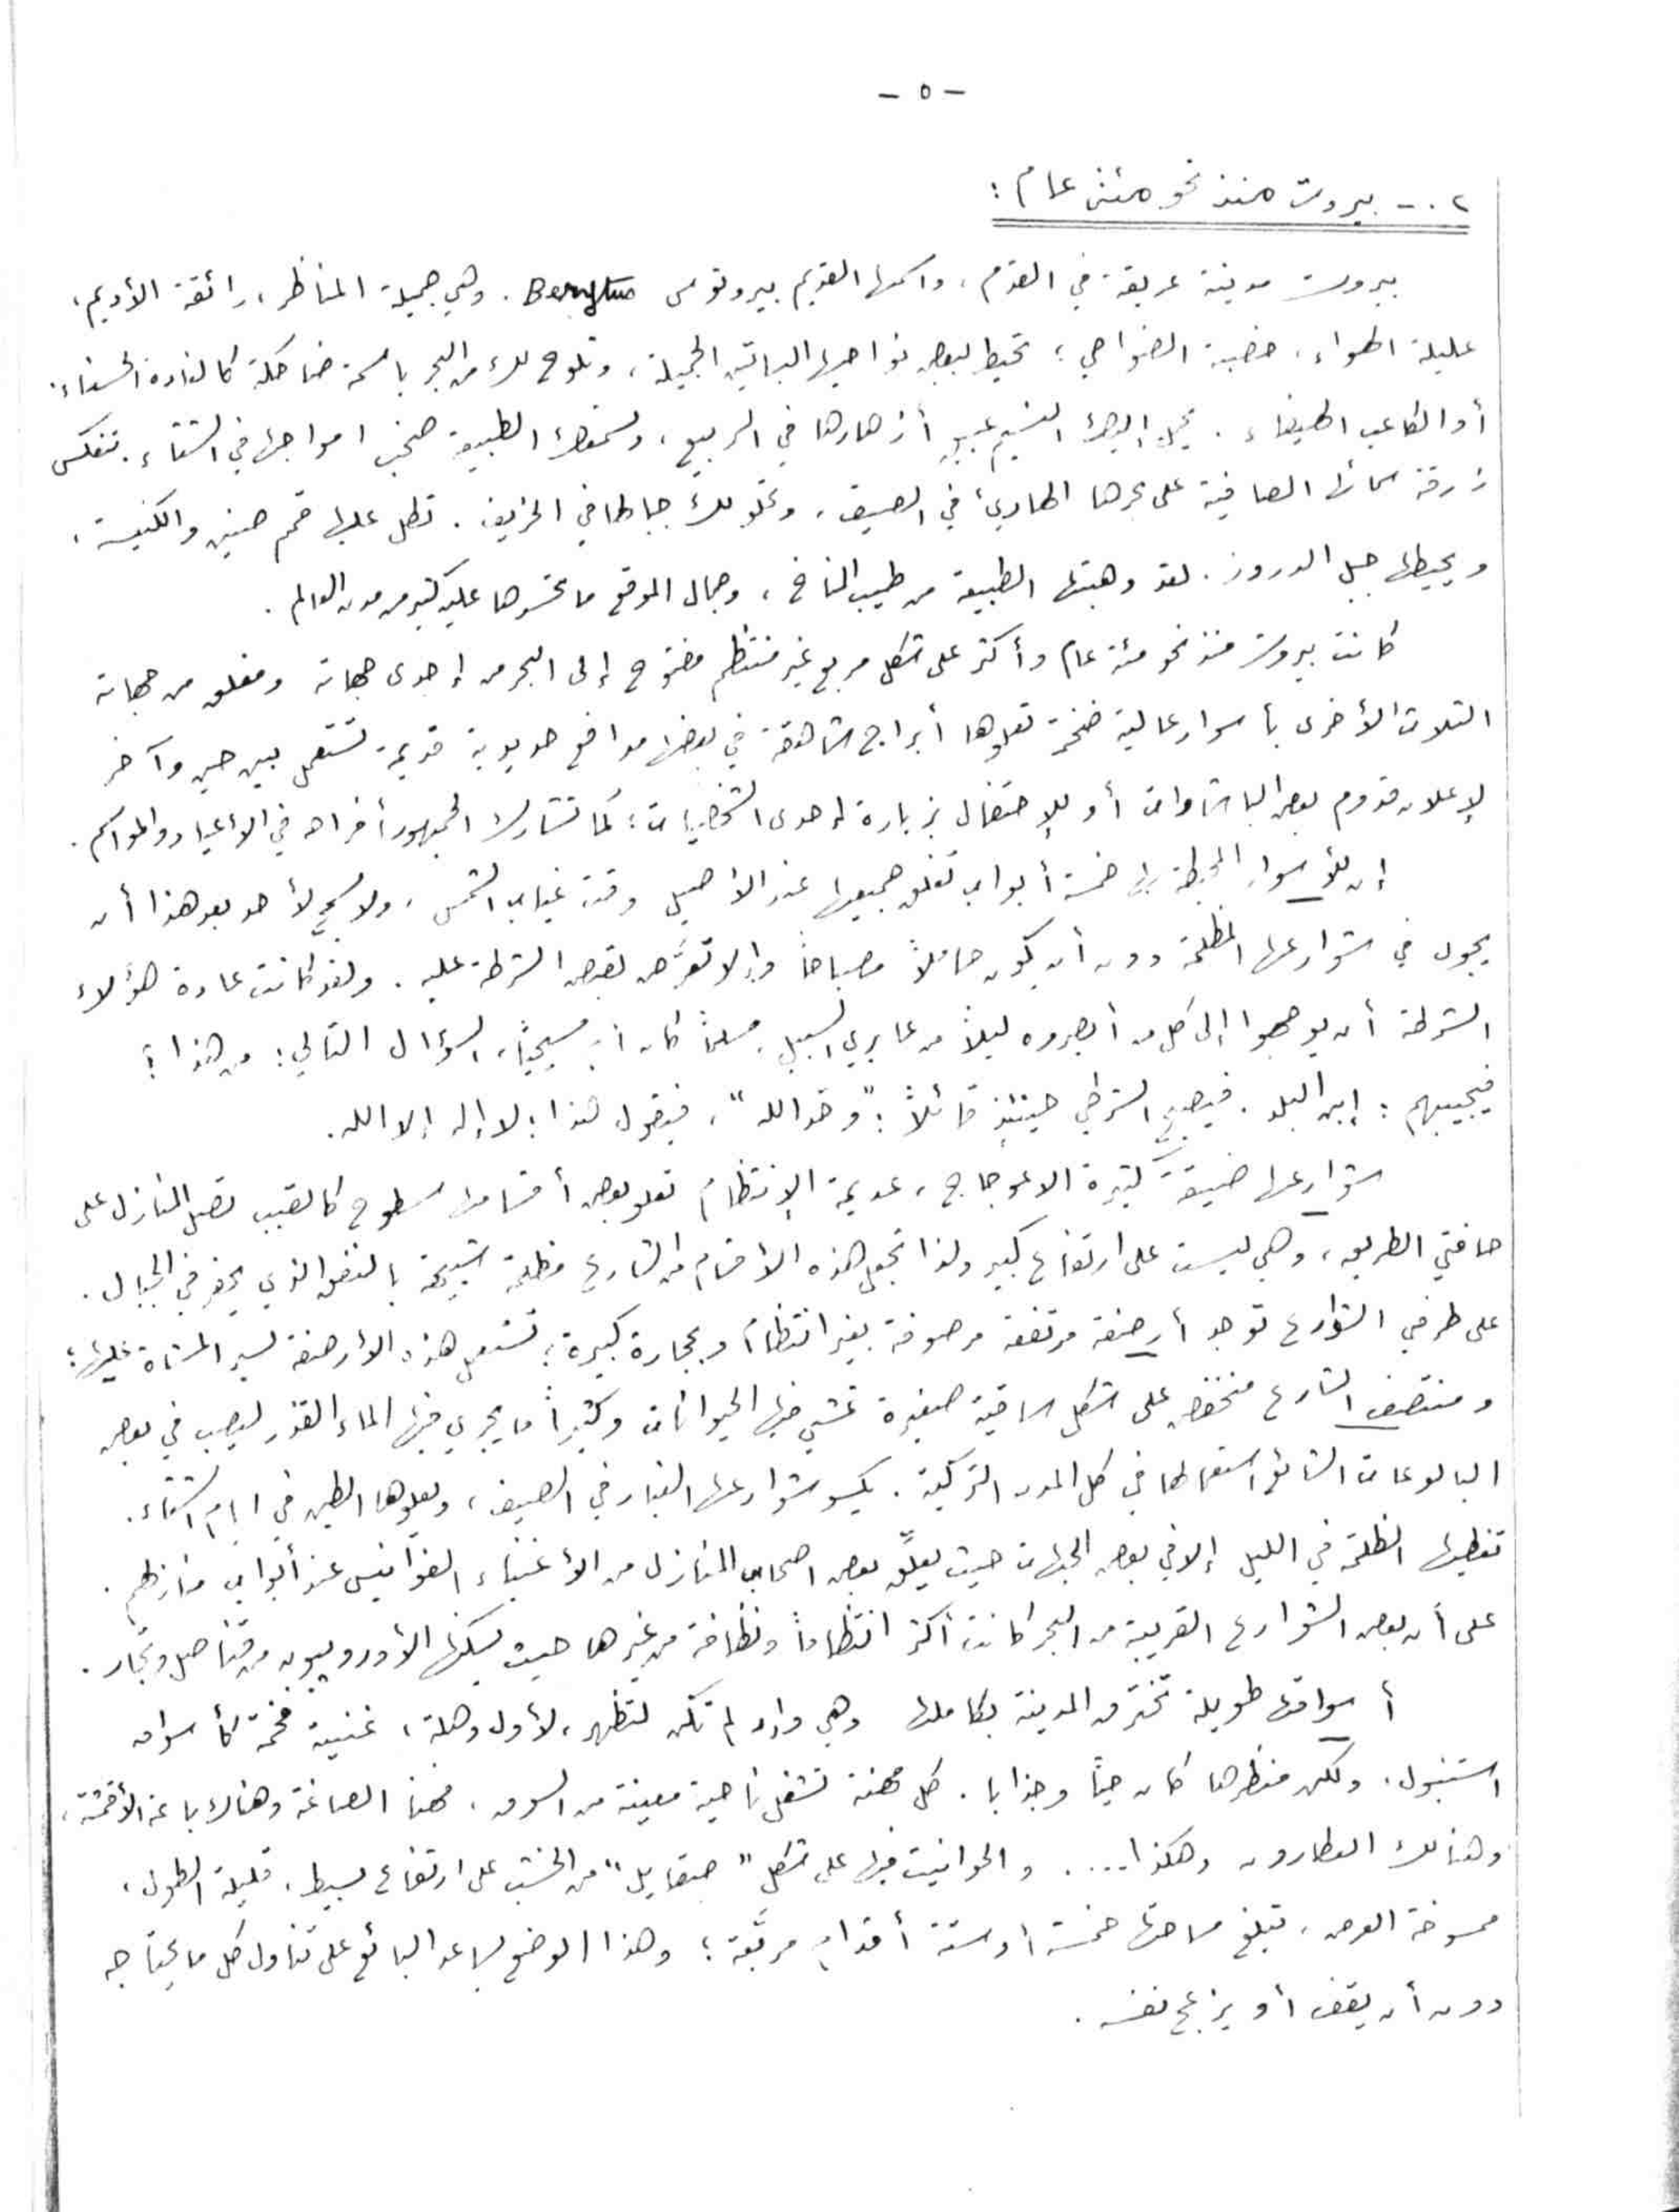 - ٥ -
٢ ٠ - بيروت منذ نحو مئة عام :
بيروت مدينة عريقة في القدم ، واسمها القديم بيروتوس Berytus . وهي جميلة المناظر ، رائقة الأديم ،
عليلة الهواء ، خصبة الضواحي ؛ تحيط ببعض نواحيها البساتين الجميلة ، وتلوح لك من البحر باسمة ضاحكة كالغادة الحسناء
أو الكاعب الهيفاء . يحمل إليك النسيم عبير أزهارها في الربيع ، وتسمعك الطبيعة صخب امواجها في الشتاء . تنعكس
زرقة سمائها الصافية على بحرها الهادئ في الصيف ، وتحلو لك جبالها في الخريف . تطل عليها قمم صنين والكنيسة ،
ويحيطها جبل الدروز . لقد وهبتها الطبيعة من طيب المناخ ، وجمال الموقع ما تحسدها عليه كثير من مدن العالم .
كانت بيروت منذ نحو مئة عام وأكثر على شكل مربع غير منتظم مفتوح إلى البحر من إحدى جهاته ومغلق من جهاته
الثلاث الأخرى بأسوار عالية ضخمة تعلوها أبراج شاهقة في بعضها مدافع حديدية قديمة تستعمل بين حين وآخر
لإعلان قدوم بعض الباشاوات أو للإحتفال بزيارة إحدى الشخصيات ؛ كما تشارك الجمهور أفراحه في الاعياد والمواسم .
إن للأسوار المحيطة بها خمسة أبواب تغلق جميعها عند الأصيل وقت غياب الشمس ، ولا يسمح لأحد بعد هذا أن
يجول في شوارعها المظلمة دون أن يكون حاملاً مصباحاً وإلا تعرّض لقبض الشرطة عليه . ولقد كانت عادة هؤلاء
الشرطة أن يوجهوا إلى كل من أبصروه ليلاً من عابري السبيل ، مسلماً كان أو مسيحياً ، السؤال التالي : من هذا ؟
فيجيبهم : إبن البلد . فيصيح الشرطي حينئذٍ قائلاً : "وحّد الله" ، فيقول هذا : لا إله إلا الله .
شوارعها ضيقة كثيرة الاعوجاج ، عديمة الإنتظام تعلو بعض أقسامها سطوح كالقبب تصل المنازل على
حافتي الطريق ، وهي ليست على ارتفاع كبير ولذا تجعل هذه الاقسام من الشارع مظلمة شبيهة بالنفق الذي يحفر في الجبال .
على طرفي الشوارع توجد أرصفة مرتفعة مرصوفة بغير انتظام وبحجارة كبيرة ؛ تستعمل هذه الأرصفة لسير المشاة عليها ؛
ومنتصف الشارع منخفض على شكل ساقية صغيرة تمشي فيها الحيوانات وكثيراً ما يجري فيها الماء القذر ليصب في بعض
البالوعات الشائع استعمالها في كل المدن التركية . يكسو شوارعها الغبار في الصيف ، ويعلوها الطين في ايام الشتاء .
تغطيها الظلمة في الليل إلا في بعض الجهات حيث يعلّق بعض اصحاب المنازل من الأغنياء الفوانيس عند أبواب منازلهم .
على أن بعض الشوارع القريبة من البحر كانت أكثر انتظاماً ونظافة من غيرها حيث يسكنها الأوروبيون من قناصل وتجار .
أسواقها طويلة تخترق المدينة بكاملها وهي وإن لم تكن لتظهر ، لأول وهلة ، غنية فخمة كأسواق
استنبول ، ولكن منظرها كان حياً وجذابا . كل مهنة تشغل ناحية معينة من السوق ، فهنا الصاغة وهناك باعة الأقمشة ،
وهنالك العطارون وهكذا .... والحوانيت فيها على شكل "صقايل" من الخشب على ارتفاع بسيط ، قليلة الطول ،
ممسوخة العرض ، تبلغ مساحتها خمسة او ستة أقدام مربّعة ؛ وهذا الوضع يساعد البائع على تناول كل ما يحتاجه
دون أن يقف أو يزعج نفسه .